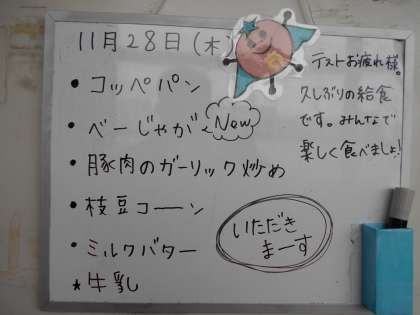 11月28日(木)
• コッペパン
• べーじゃが New
• 豚肉のガーリック炒め
• 枝豆コーン
• ミルクバター
* 牛乳
テストお疲れ様。
久しぶりの給食
です。みんなで
楽しく食べましょ!
いただき
まーす